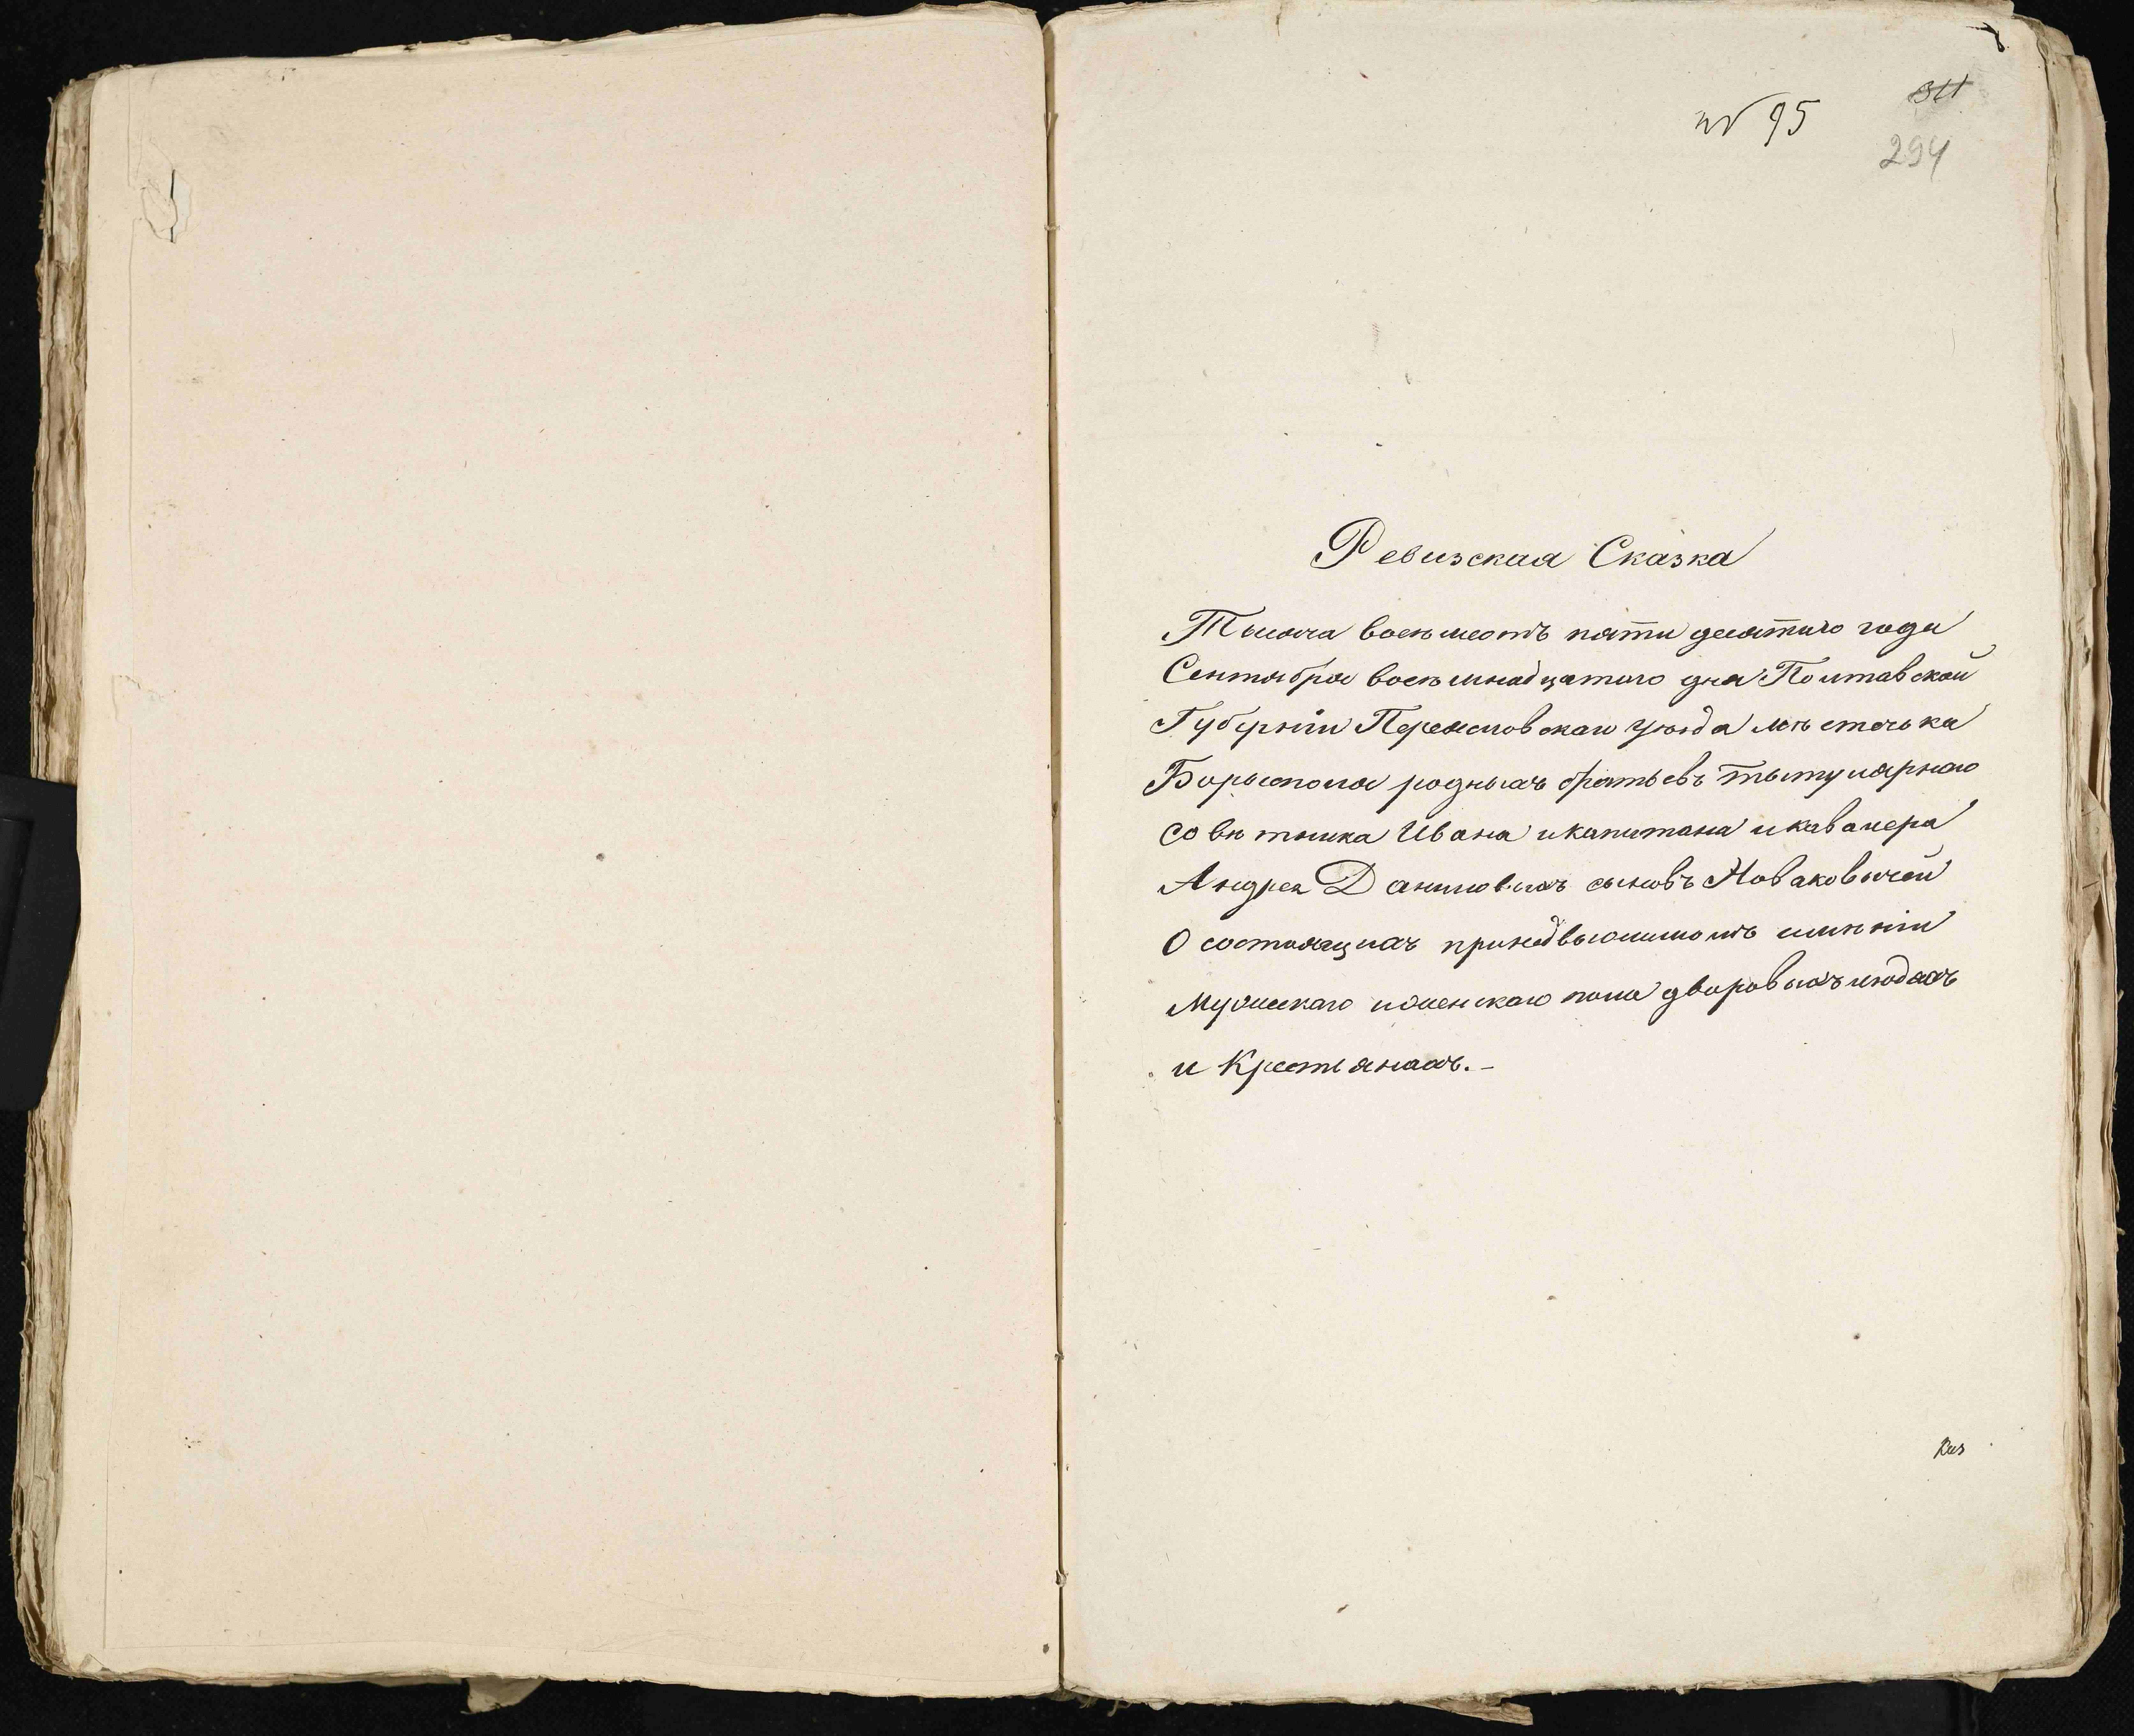 № 95
311
294
Ревизская Сказка
Тысяча восемьсотъ пятидесятого года
Сентября восемнадцатого дня Полтавской
Губерніи Переяславскаго уѣзда мѣстечька
Борысполя родныхъ братьевъ тытулярнаго
совѣтника Ивана и капитана и кавалера
Андрея Даниловыхъ сыновъ Новаковичей
О состоящихъ при недвыжимомъ имѣніи
мужескаго и женскаго пола дворовыхъ людяхъ
и Крестьянахъ.-